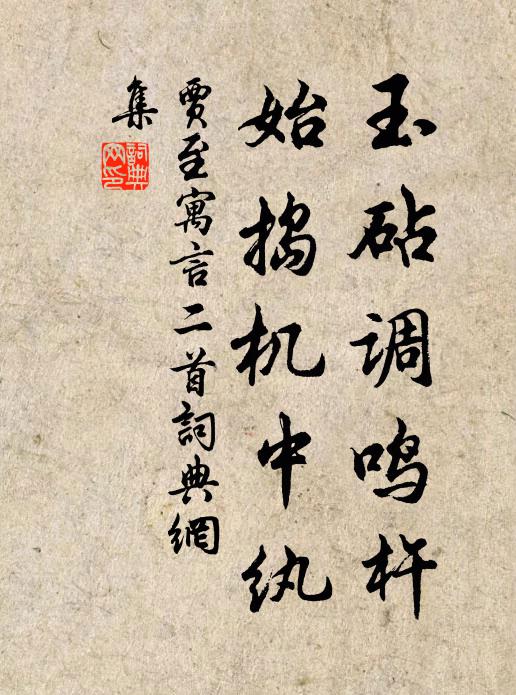 玉砧调鸣杵
始捣机中纨
贾至寓言二首詞典網
集
詞典網印